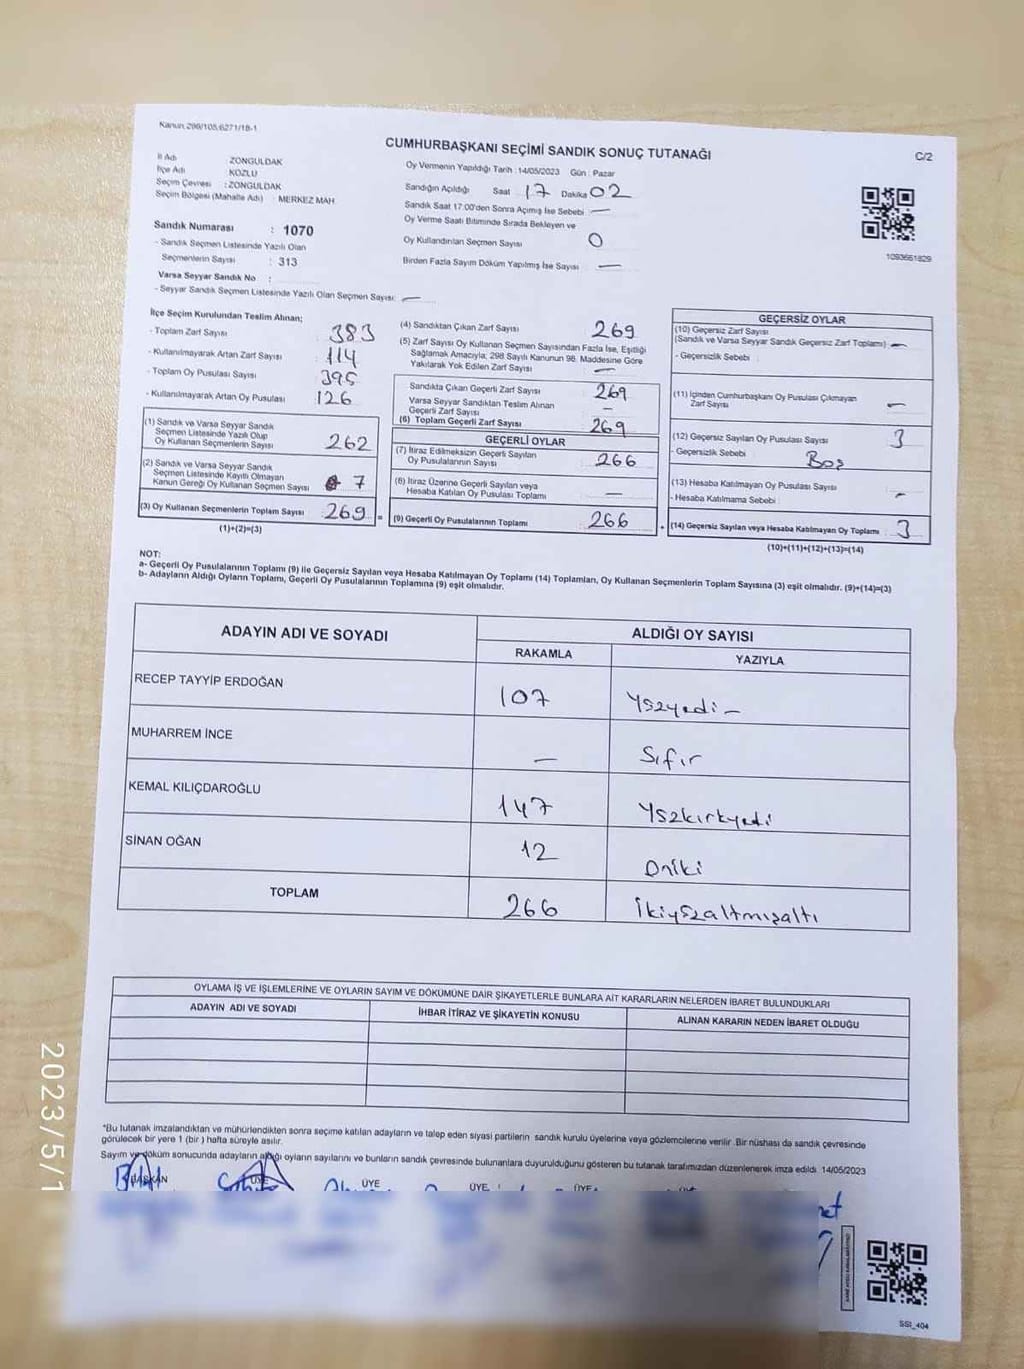 Kanun:298/105,6271/18-1
CUMHURBAŞKANI SEÇİMİ SANDIK SONUÇ TUTANAĞI
C/2
İl Adı ZONGULDAK
İlçe Adı KOZLU
Seçim Çevresi :ZONGULDAK
Seçim Bölgesi (Mahalle Adı) : MERKEZ MAH.
Sandık Numarası : 1070
- Sandık Seçmen Listesinde Yazılı Olan
Seçmenlerin Sayısı : 313
Varsa Seyyar Sandık No :
- Seyyar Sandık Seçmen Listesinde Yazılı Olan Seçmen Sayısı: —
Oy Vermenin Yapıldığı Tarih : 14/05/2023 Gün : Pazar
Sandığın Açıldığı Saat 17 Dakika 02
Sandık Saat 17:00'den Sonra Açılmış İse Sebebi : —
Oy Verme Saati Bitiminde Sırada Bekleyen ve
Oy Kullandırılan Seçmen Sayısı 0
Birden Fazla Sayım Döküm Yapılmış İse Sayısı —
1093661829
İlçe Seçim Kurulundan Teslim Alınan;
- Toplam Zarf Sayısı 383
- Kullanılmayarak Artan Zarf Sayısı 114
- Toplam Oy Pusulası Sayısı 395
- Kullanılmayarak Artan Oy Pusulası 126
(1) Sandık ve Varsa Seyyar Sandık
Seçmen Listesinde Yazılı Olup
Oy Kullanan Seçmenlerin Sayısı 262
(2) Sandık ve Varsa Seyyar Sandık
Seçmen Listesinde Kayıtlı Olmayan
Kanun Gereği Oy Kullanan Seçmen Sayısı 7
(3) Oy Kullanan Seçmenlerin Toplam Sayısı 269 =
(1)+(2)=(3)
(4) Sandıktan Çıkan Zarf Sayısı 269
(5) Zarf Sayısı Oy Kullanan Seçmen Sayısından Fazla İse, Eşitliği
Sağlamak Amacıyla; 298 Sayılı Kanunun 98. Maddesine Göre
Yakılarak Yok Edilen Zarf Sayısı —
Sandıkta Çıkan Geçerli Zarf Sayısı 269
Varsa Seyyar Sandıktan Teslim Alınan
Geçerli Zarf Sayısı —
(6) Toplam Geçerli Zarf Sayısı 269
GEÇERLİ OYLAR
(7) İtiraz Edilmeksizin Geçerli Sayılan
Oy Pusulalarının Sayısı 266
(8) İtiraz Üzerine Geçerli Sayılan veya
Hesaba Katılan Oy Pusulası Toplamı —
(9) Geçerli Oy Pusulalarının Toplamı 266 +
GEÇERSİZ OYLAR
(10) Geçersiz Zarf Sayısı
(Sandık ve Varsa Seyyar Sandık Geçersiz Zarf Toplamı) —
- Geçersizlik Sebebi :
(11) İçinden Cumhurbaşkanı Oy Pusulası Çıkmayan
Zarf Sayısı —
(12) Geçersiz Sayılan Oy Pusulası Sayısı 3
- Geçersizlik Sebebi : Boş
(13) Hesaba Katılmayan Oy Pusulası Sayısı —
- Hesaba Katılmama Sebebi :
(14) Geçersiz Sayılan veya Hesaba Katılmayan Oy Toplamı 3
(10)+(11)+(12)+(13)=(14)
NOT:
a- Geçerli Oy Pusulalarının Toplamı (9) ile Geçersiz Sayılan veya Hesaba Katılmayan Oy Toplamı (14) Toplamları, Oy Kullanan Seçmenlerin Toplam Sayısına (3) eşit olmalıdır. (9)+(14)=(3)
b- Adayların Aldığı Oyların Toplamı, Geçerli Oy Pusulalarının Toplamına (9) eşit olmalıdır.
ADAYIN ADI VE SOYADI
ALDIĞI OY SAYISI
RAKAMLA YAZIYLA
RECEP TAYYİP ERDOĞAN 107 Yüzyedi –
MUHARREM İNCE — Sıfır
KEMAL KILIÇDAROĞLU 147 Yüzkırkyedi
SİNAN OĞAN 12 Oniki
TOPLAM 266 İkiyüzaltmışaltı
OYLAMA İŞ VE İŞLEMLERİNE VE OYLARIN SAYIM VE DÖKÜMÜNE DAİR ŞİKAYETLERLE BUNLARA AİT KARARLARIN NELERDEN İBARET BULUNDUKLARI
ADAYIN ADI VE SOYADI İHBAR İTİRAZ VE ŞİKAYETİN KONUSU ALINAN KARARIN NEDEN İBARET OLDUĞU
*Bu tutanak imzalandıktan ve mühürlendikten sonra seçime katılan adayların ve talep eden siyasi partilerin sandık kurulu üyelerine veya gözlemcilerine verilir .Bir nüshası da sandık çevresinde
görülecek bir yere 1 (bir ) hafta süreyle asılır.
Sayım ve döküm sonucunda adayların aldığı oyların sayılarını ve bunların sandık çevresinde bulunanlara duyurulduğunu gösteren bu tutanak tarafımızdan düzenlenerek imza edildi. 14/05/2023
BAŞKAN ÜYE ÜYE ÜYE ÜYE
SSI_404
2023/5/1